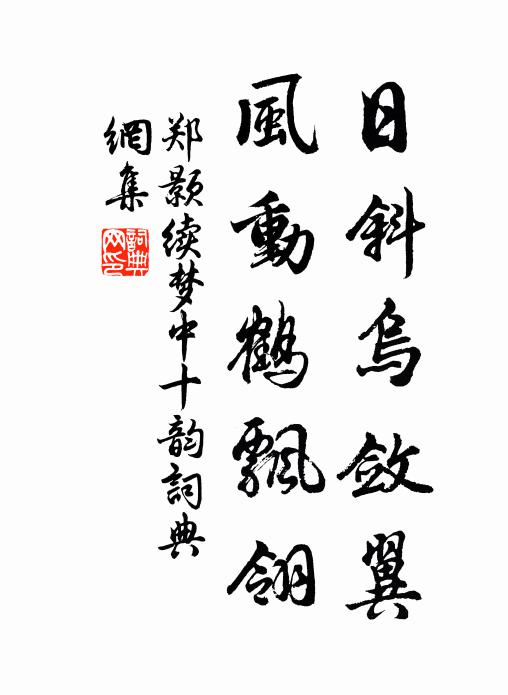 日斜烏斂翼
風動鶴飄翎
郑颢续梦中十韵詞典
網集
詞典
网印